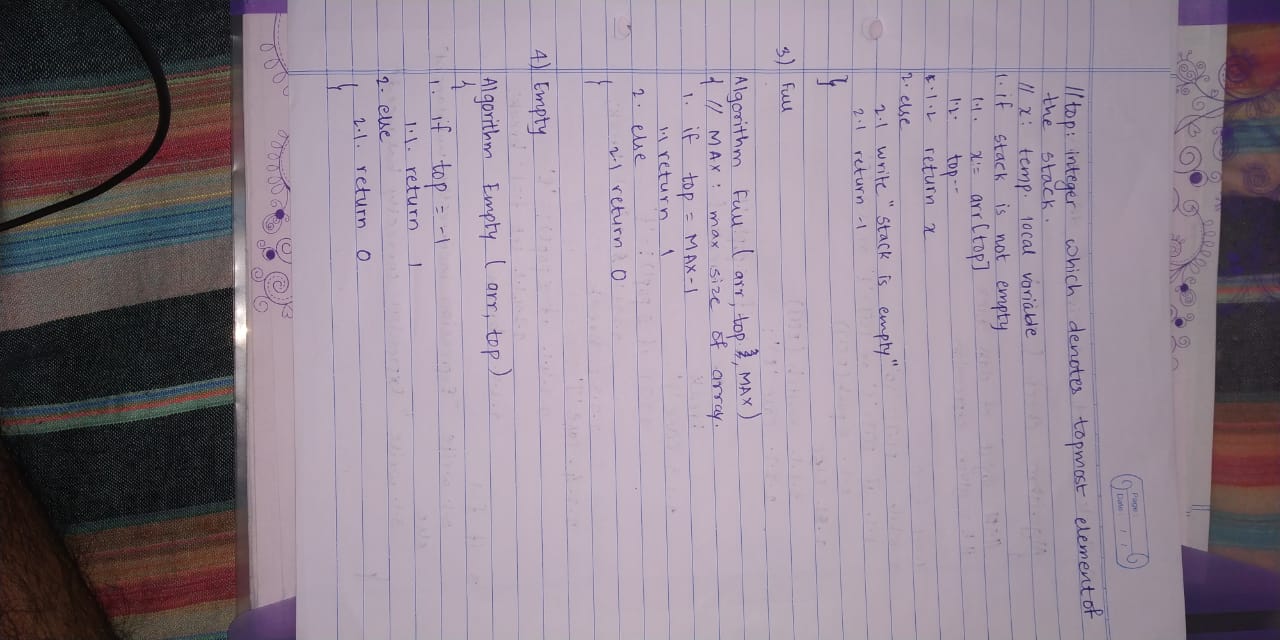 Page:
Date: / /
// top: integer which denotes topmost element of
the stack.
// x: temp. local variable
1. if stack is not empty
1.1. x:= arr[top]
1.2. top--
1.2 return x
2. else
2.1 write "Stack is empty"
2.1 return -1
}
3) Full
Algorithm Full ( arr, top, MAX)
{ // MAX: max size of array.
1. if top = MAX-1
1.1 return 1
2. else
2.1 return 0
}
4) Empty
Algorithm Empty ( arr, top)
{
1. if top = -1
1.1. return 1
2. else
2.1. return 0
}